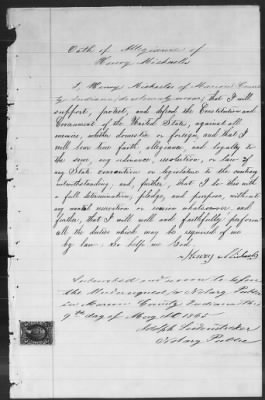 Oath of Allegiance of
Henry Michaelis
I, Henry Michaelis of Marion County
Indiana, do solemnly swear, that I will
support, protect, and defend the Constitution and
Government of the United States, against all
enemies, whether domestic or foreign, and that I
will bear true faith, allegiance, and loyalty to
the same, any ordinance, resolution, or law of
any State convention or legislature to the contrary
notwithstanding, and, further, that I do this with
a full determination, pledge, and purpose, without
any mental reservation or evasion whatsoever, and
further, that I will well and faithfully perform
all the duties which may be required of me
by law. So help me God.
Henry Michaelis
Subscribed and sworn to before
the Undersigned, a Notary Public
in Marion County Indiana this
9th day of May AD 1865
Adolph
Notary Public